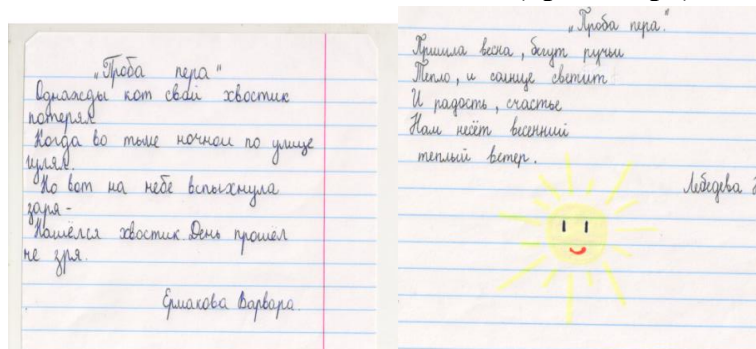 „Проба пера“
Однажды кот свой хвостик
потерял
Когда во тьме ночной по улице
гулял.
Но вот на небе вспыхнула
заря -
Нашёлся хвостик. День прошёл
не зря.
Ермакова Варвара.
„Проба пера.“
Пришла весна, бегут ручьи
Тепло, и солнце светит
И радость, счастье
Нам несёт весенний
теплый ветер.
Лебедева